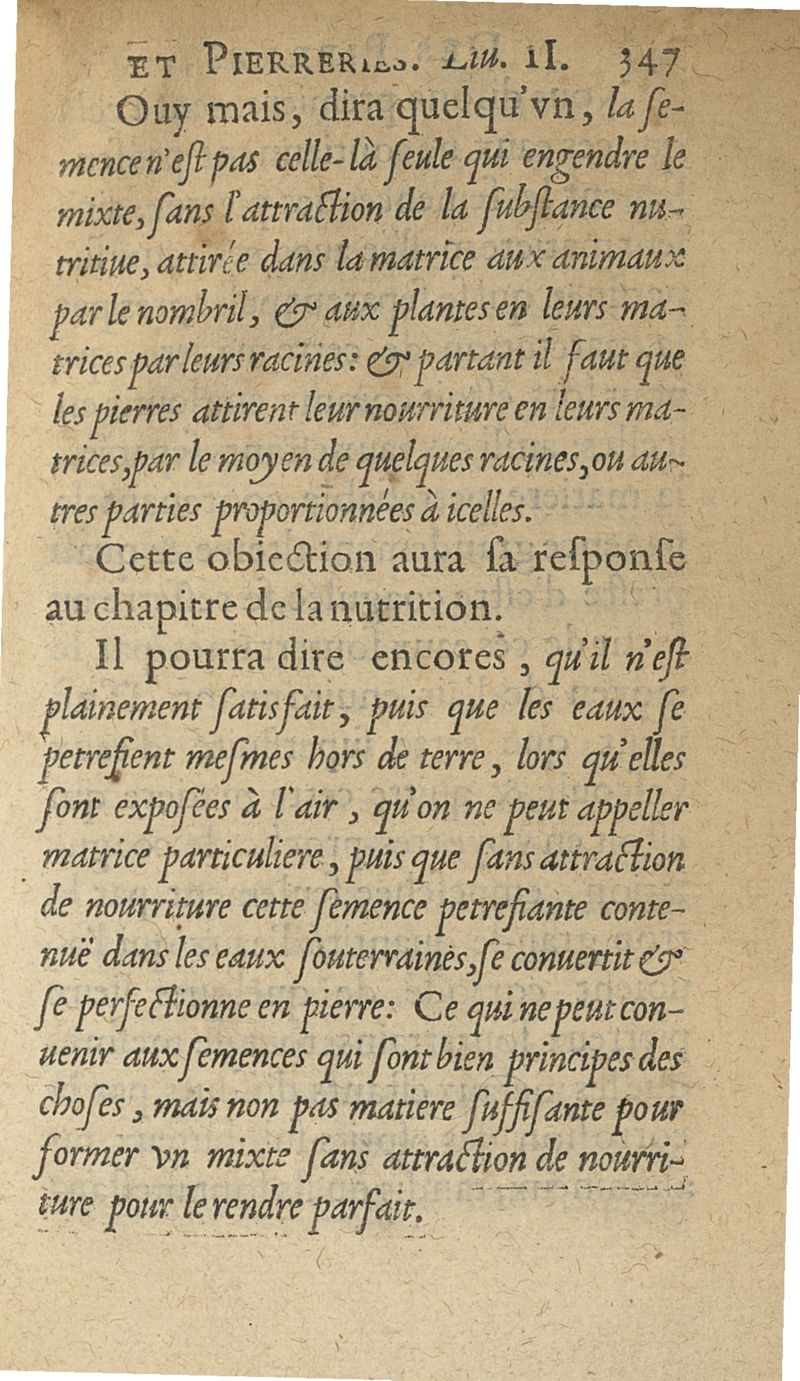 ET PIERRERIES. Liu. II. 347
Ouy mais, dira quelqu'vn, la ſe-
mence n'eſt pas celle-là ſeule qui engendre le
mixte, ſans l'attraction de la ſubſtance nu-
tritiue, attirée dans la matrice aux animaux
par le nombril, & aux plantes en leurs ma-
trices par leurs racines: & partant il faut que
les pierres attirent leur nourriture en leurs ma-
trices, par le moyen de quelques racines, ou au-
tres parties proportionnées à icelles.
Cette obiection aura ſa reſponſe
au chapitre de la nutrition.
Il pourra dire encores, qu'il n'eſt
plainement ſatisfait, puis que les eaux ſe
petrefient meſmes hors de terre, lors qu'elles
ſont expoſées à l'air, qu'on ne peut appeller
matrice particuliere, puis que ſans attraction
de nourriture cette ſemence petrefiante conte-
nuë dans les eaux ſouterraines, ſe conuertit &
ſe perfectionne en pierre: Ce qui ne peut con-
uenir aux ſemences qui ſont bien principes des
choſes, mais non pas matiere ſuffiſante pour
former vn mixte ſans attraction de nourri-
ture pour le rendre parfait.